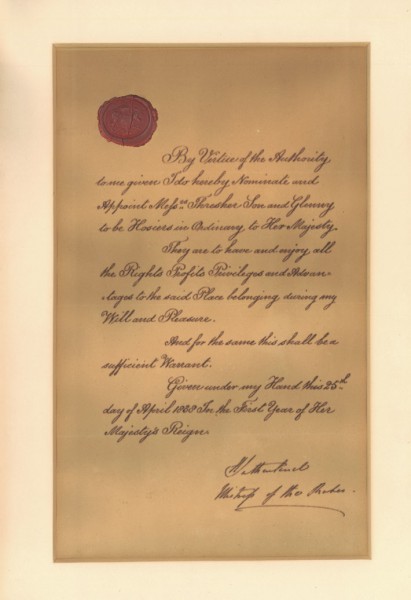 By Virtue of the Authority
to me given I do hereby Nominate and
Appoint Mess.rs Thresher Son and Glenny
to be Hosiers in Ordinary to Her Majesty.
They are to have and enjoy all
the Rights Profits Privileges and Advan-
tages to the said Place belonging during my
Will and Pleasure.
And for the same this shall be a
sufficient Warrant.
Given under my Hand this 25th
day of April 1838 In the First Year of Her
Majesty's Reign.
Mistress of the Robes